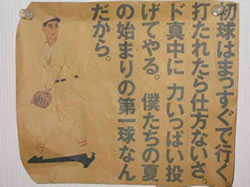 初球はまっすぐで行く。
打たれたら仕方ないさ。
ド真中に 力いっぱい投
げてやる。僕たちの夏
の始まりの第一球なん
だから。